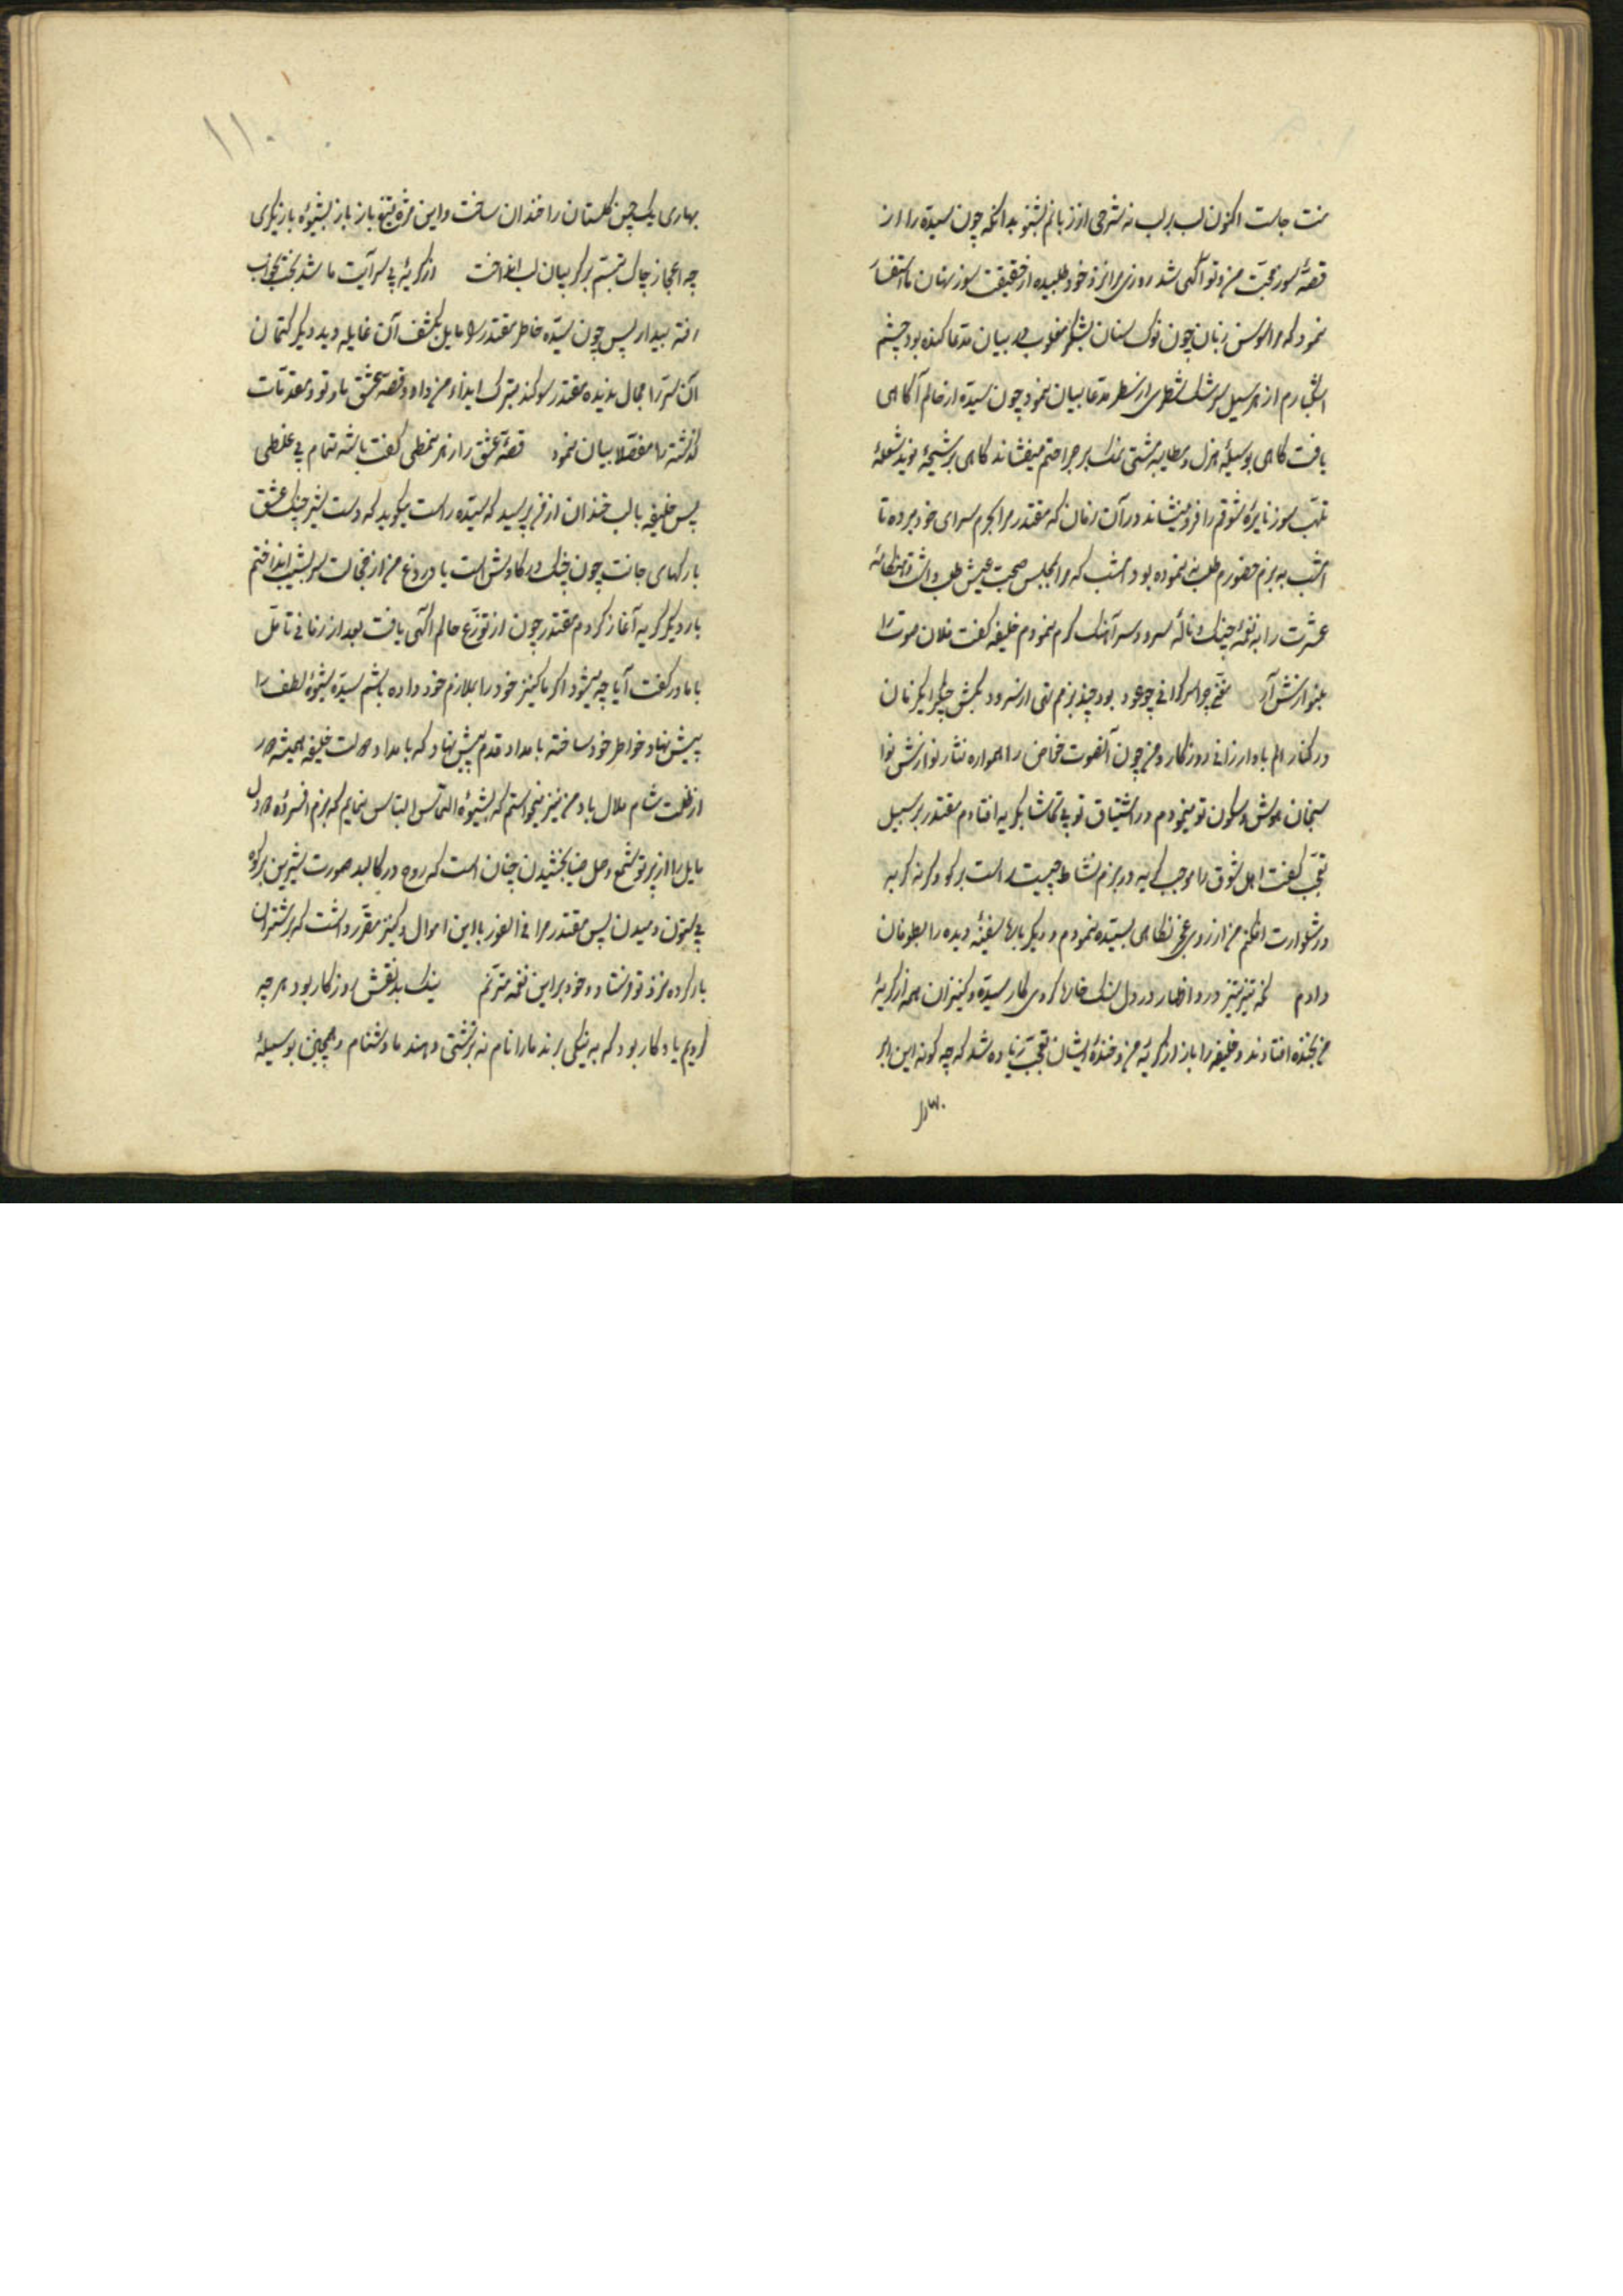 منت جاست اکنون لب بر لب نه شرحی از زبانم بشنو بدانکه چون سیده را از
قصهٔ سوز محبت من و تو آگهی شد روزی مرا نزد خود طلبیده از حقیقت سوز نهان ما استفسار
نمود که مرا سوسن زبان چون نوک سنان بشکر بیان مدعا کند بود چشم
اشکبارم از هر سیل سرشک سطری از سطر مدعا بیان نمود چون سیده از حالم آگاهی
یافت گاهی بوسیلهٔ هزل و مطایبه مشتی نمک بر جراحتم میفشاند گاهی برشحهٔ نوید شعلهٔ
تلهب سوز نایرهٔ شوقم را فرو مینشاند در آن زمان که مقتدر مرا بحرم سرای خود برده تا
امشب به بزم حضورم طلب ننموده بود امشب که مرا بمجلس صحبت عیش طلب داشت هنگامهٔ
عشرت را به نغمهٔ چنگ و نالهٔ سرود سرآهنگ گرم نمودم خلیفه گفت فلان صوت را
بنوازش آر چو عود بود چند بزم تهی از سرود بکش چنگرا یکزمان
در کنار الم باد ارزانی روزگار و من چون آنصوت خاص را همواره نثار نوازش نوا
سنجان هوش و سکون تو مینمودم در اشتیاق تو بی تماشا بگریه افتادم مقتدر بر سبیل
تعجب گفت اهل شوق را موجب گریه در بزم نشاط چیست راست بر گو و گرنه گریه
در شلوارت افکنم من از روی عجز نگاهی بسیده نمودم و دیگر باره سفینهٔ دیده را بطوفان
دادم درد اظهار درد دل سنگ خاره کردی کار سیده و کنیزان همه از گریهٔ
من بخنده افتادند و خلیفه را باز از گریهٔ من و خندهٔ ایشان تعجب زیاده شد که چه گونه این ابر
بهاری یک چمن گلستان را خندان ساخت و این مژه تیغ باز باز بشیوهٔ بازیگری
چه اعجاز چاک تبسم بر گریبان لب انداخت از گریهٔ بی سرآیت ما شد بخت بخواب
رفته بیدار پس چون سیده خاطر مقتدر را مایل بکشف آن غایله دید دیگر کتمان
آن سر را مجال ندیده مقتدر سوگند بترک ایذاء من داد و قصهٔ عشق ما و تو و مقدمات
گذشته را مفصلا بیان نمود قصهٔ عشق را ز هر نمطی گفت با شه تمام بی غلطی
پس خلیفه با لب خندان از من پرسید که سیده راست میگوید که دست شیر چنگ عشق
با رگهای جانت چون چنگ در کاوش است یا دروغ من از خجالت سر بشیب انداختم
بار دیگر گریه آغاز کردم مقتدر چون از توزع حالم آگهی یافت بعد از زمانی تامل
با مادر گفت آیا چه میشود اگر ما کنیز خود را بملازم خود داده باشیم سیده شیوهٔ لطف را
پیش نهاد خواطر خود ساخته بامداد قدم پیش نهاد که بامداد دولت خلیفه همیشه دور
از ظلمت شام ملال باد من نیز میخواستم که بشیوهٔ التماس التماس نمایم که بزم افسردهٔ دو دل
مایل را از پرتو شمع وصل ضیا بخشیدن چنان است که روح در کالبد صورت شیرین بر کوه
بی ستون دمیدن پس مقتدر مرا فی الفور با این اموال و کنیز مقرر داشت که بر شتران
بار کرده نزد تو فرستاد و خود بر این نغمه مترنم نیک و بد نقش روزگار بود هر چه
کردیم یادگار بود که به نیکی برند ما را نام نه بزشتی دهند ما دشنام و همچنین بوسیلهٔ